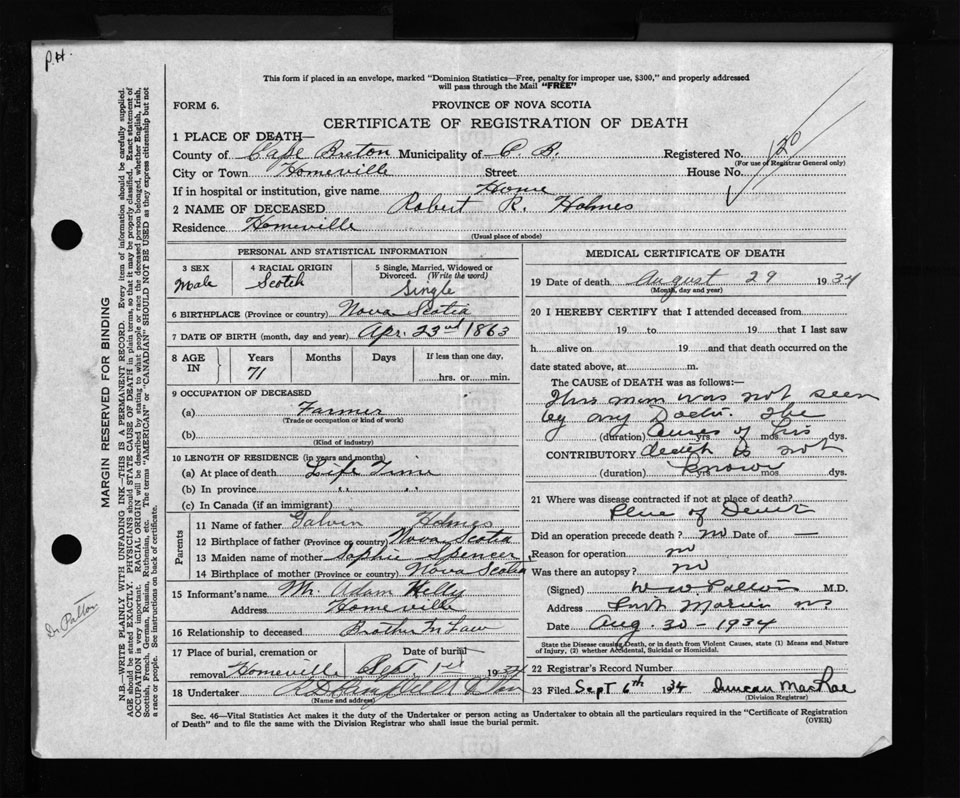 P.H.
This form if placed in an envelope, marked "Dominion Statistics—Free, penalty for improper use, $300," and properly addressed
will pass through the Mail "FREE"
FORM 6.
PROVINCE OF NOVA SCOTIA
CERTIFICATE OF REGISTRATION OF DEATH
1 PLACE OF DEATH—
County of Cape Breton Municipality of C. B. Registered No. 120
(For use of Registrar General only)
City or Town Homeville Street House No.
If in hospital or institution, give name Home
2 NAME OF DECEASED Robert R. Holmes
Residence Homeville
(Usual place of abode)
PERSONAL AND STATISTICAL INFORMATION
3 SEX Male
4 RACIAL ORIGIN Scotch
5 Single, Married, Widowed or
Divorced. (Write the word)
Single
6 BIRTHPLACE (Province or country) Nova Scotia
7 DATE OF BIRTH (month, day and year) Apr. 23rd 1863
8 AGE IN Years Months Days If less than one day,
71 hrs. or min.
9 OCCUPATION OF DECEASED
(a) Farmer
(Trade or occupation or kind of work)
(b)
(Kind of industry)
10 LENGTH OF RESIDENCE (in years and months)
(a) At place of death Life Time
(b) In province " "
(c) In Canada (if an immigrant)
Parents
11 Name of father Holmes
12 Birthplace of father (Province or country) Nova Scotia
13 Maiden name of mother Sophie Spencer
14 Birthplace of mother (Province or country) Nova Scotia
15 Informant's name Mr. Adam Kelly
Address Homeville
16 Relationship to deceased Brother In Law
17 Place of burial, cremation or Date of burial
removal Homeville Sept 1st 1934
18 Undertaker & Son
(Name and address)
MEDICAL CERTIFICATE OF DEATH
19 Date of death August 29 1934
(Month, day and year)
20 I HEREBY CERTIFY that I attended deceased from
19 to 19 that I last saw
h alive on 19 and that death occurred on the
date stated above, at m.
The CAUSE of DEATH was as follows:—
This man was not seen
by any Doctor. The
(duration) cause of his yrs. mos. dys.
CONTRIBUTORY death is not
(duration) known yrs. mos. dys.
21 Where was disease contracted if not at place of death?
Place of Death
Did an operation precede death? no Date of —
Reason for operation no
Was there an autopsy? no
(Signed) W. W. Patton M.D.
Address Port Morien NS
Date Aug. 30 - 1934
State the Disease causing Death, or in death from Violent Causes, state (1) Means and Nature
of Injury, (2) whether Accidental, Suicidal or Homicidal.
22 Registrar's Record Number
23 Filed Sept 6th 1934 Duncan MacRae
(Division Registrar)
Sec. 46—Vital Statistics Act makes it the duty of the Undertaker or person acting as Undertaker to obtain all the particulars required in the "Certificate of Registration
of Death" and to file the same with the Division Registrar who shall issue the burial permit.
(OVER)
MARGIN RESERVED FOR BINDING
N.B.—WRITE PLAINLY WITH UNFADING INK—THIS IS A PERMANENT RECORD. Every item of information should be carefully supplied.
AGE should be stated EXACTLY. PHYSICIANS should STATE CAUSE OF DEATH in plain terms, so that it may be properly classified. Exact statement of
OCCUPATION is very important. RACIAL ORIGIN will be described by stating to what people or race the deceased person belonged, whether English, Irish,
Scottish, French, German, Russian, Ruthenian, etc. The terms "AMERICAN" or "CANADIAN" SHOULD NOT BE USED as they express citizenship but not
a race or people. See instructions on back of certificate.
Dr Patton